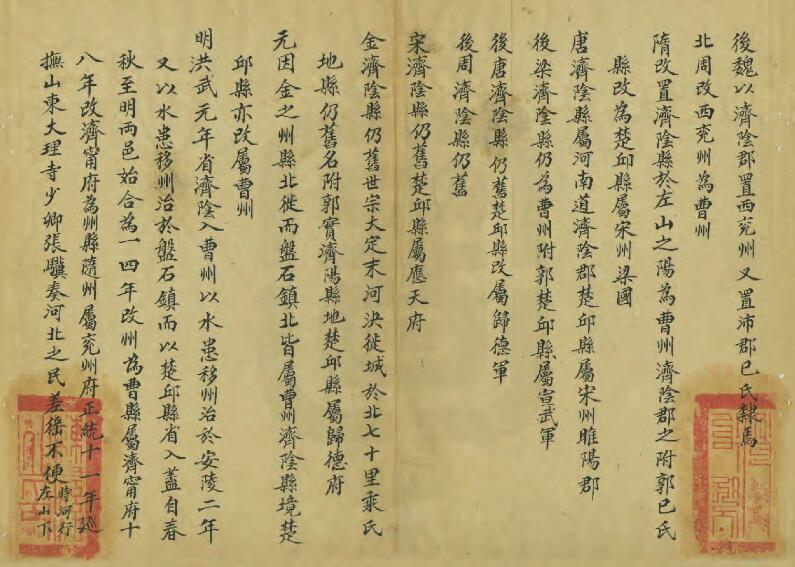 後魏以濟陰郡置西兖州又置沛郡巳氏隸焉
北周改西兖州為曹州
隋改置濟陰縣於左山之陽為曹州濟陰郡之附郭巳氏
縣改為楚邱縣屬宋州梁國
唐濟陰縣屬河南道濟陰郡楚邱縣屬宋州睢陽郡
後梁濟陰縣仍為曹州附郭楚邱縣屬宣武軍
後唐濟陰縣仍舊楚邱縣改屬歸德軍
後周濟陰縣仍舊
宋濟陰縣仍舊楚邱縣屬應天府
金濟陰縣仍舊世宗大定末河決徙城於北七十里乘氏
地縣仍舊名附郭實濟陽縣地楚邱縣屬歸德府
元因金之州縣北徙而盤石鎮北皆屬曹州濟陰縣境楚
邱縣亦改屬曹州
明洪武元年省濟陰入曹州以水患移州治於安陵二年
又以水患移州治於盤石鎮而以楚邱縣省入蓋自春
秋至明兩邑始合為一四年改州為曹縣屬濟甯府十
八年改濟甯府為州縣隨州屬兖州府正統十一年廵
撫山東大理寺少卿張驥奏河北之民差徭不便時河行左山下